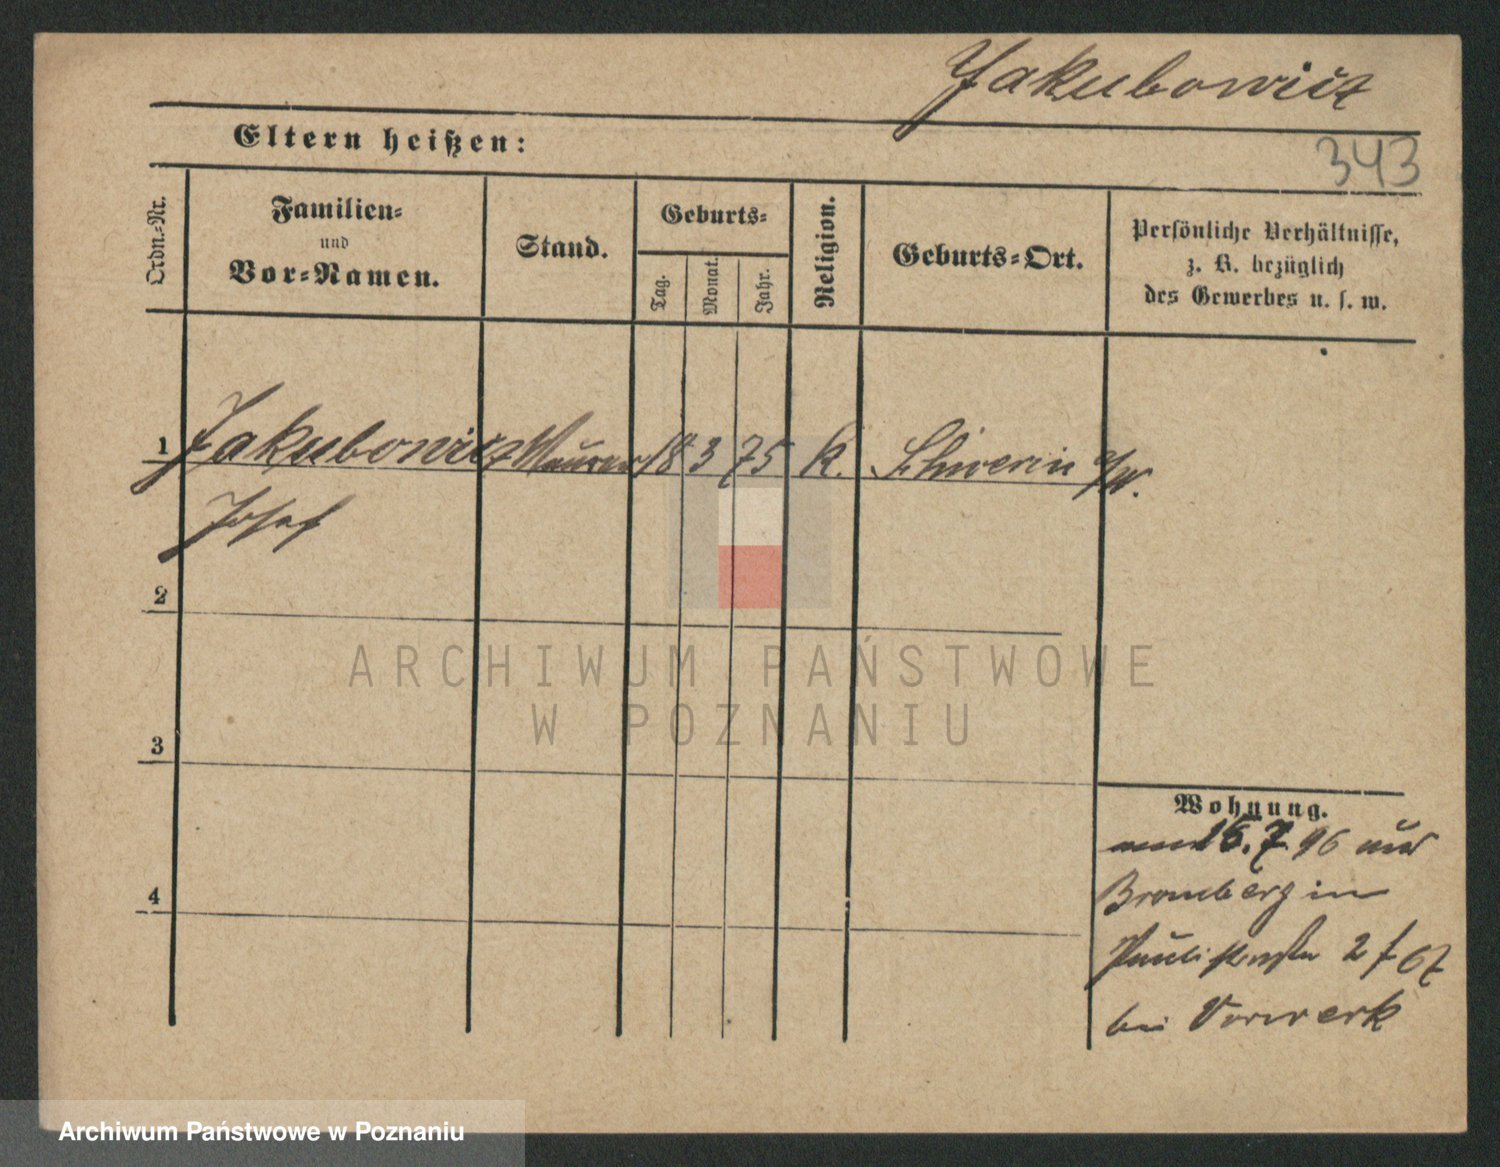 Jakubowicz
Eltern heißen:
343
Ordn.-Nr.
Familien-
und
Vor-Namen.
Stand.
Geburts-
Tag.
Monat.
Jahr.
Religion.
Geburts-Ort.
Persönliche Verhältnisse,
z. B. bezüglich
des Gewerbes u. s. w.
1 Jakubowicz Maurer 18 3 75 k. Schwerin a/W.
Josef
2
3
4
Wohnung.
16.7.96 aus
Bromberg in
Paulikirchstr 2
bei Vorwerk
ARCHIWUM PAŃSTWOWE
W POZNANIU
Archiwum Państwowe w Poznaniu